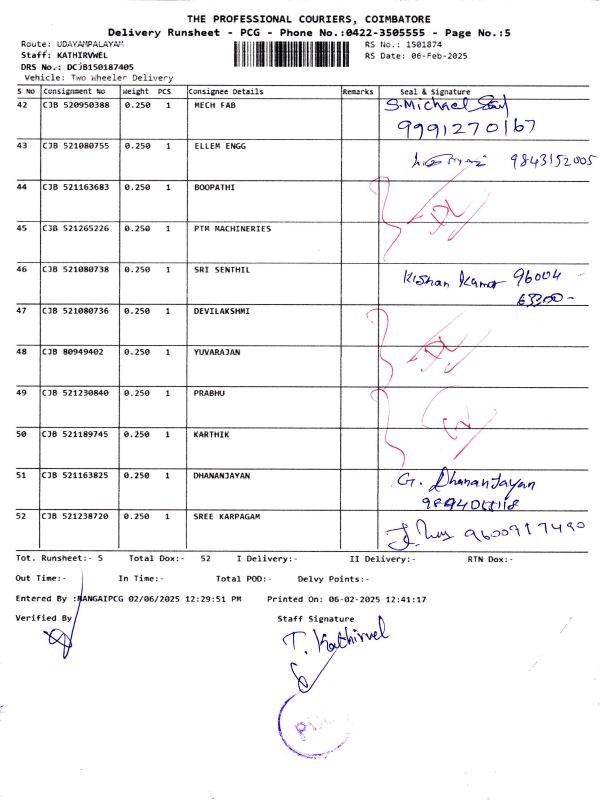 THE PROFESSIONAL COURIERS, COIMBATORE
Delivery Runsheet - PCG - Phone No.:0422-3505555 - Page No.:5
Route: UDAYAMPALAYAM RS No.: 1501874
Staff: KATHIRVWEL RS Date: 06-Feb-2025
DRS No.: DCJB150187405
Vehicle: Two Wheeler Delivery
S No Consignment No Weight PCS Consignee Details Remarks Seal & Signature
42 CJB 520950388 0.250 1 MECH FAB S.Michael
9991270167
43 CJB 521080755 0.250 1 ELLEM ENGG 9843152005
44 CJB 521163683 0.250 1 BOOPATHI
45 CJB 521265226 0.250 1 PTM MACHINERIES
46 CJB 521080738 0.250 1 SRI SENTHIL Kishan Kumar 96004
63300-
47 CJB 521080736 0.250 1 DEVILAKSHMI
48 CJB 80949402 0.250 1 YUVARAJAN
49 CJB 521230840 0.250 1 PRABHU
50 CJB 521189745 0.250 1 KARTHIK
51 CJB 521163825 0.250 1 DHANANJAYAN G. Dhananjayan
52 CJB 521238720 0.250 1 SREE KARPAGAM 9600917490
Tot. Runsheet:- 5 Total Dox:- 52 I Delivery:- II Delivery:- RTN Dox:-
Out Time:- In Time:- Total POD:- Delvy Points:-
Entered By :NANGAIPCG 02/06/2025 12:29:51 PM Printed On: 06-02-2025 12:41:17
Verified By Staff Signature
T. Kathirvel